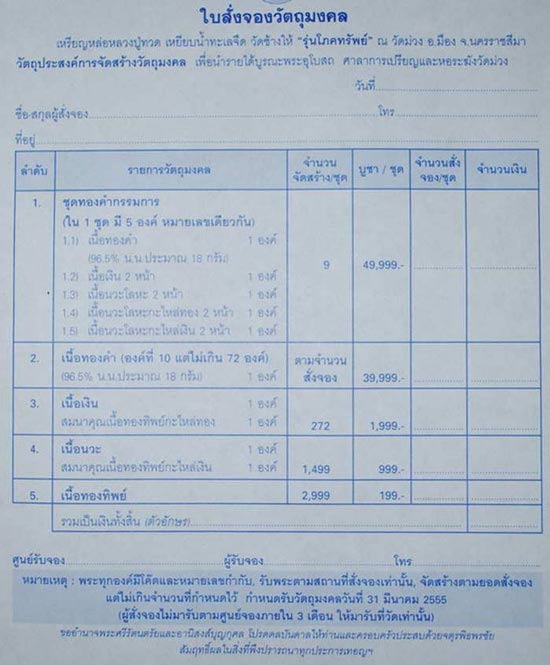 ใบสั่งจองวัตถุมงคล
เหรียญหล่อหลวงปู่ทวด เหยียบน้ำทะเลจืด วัดช้างให้ "รุ่นโภคทรัพย์" ณ วัดม่วง อ.มือง จ.นครราชสีมา
วัตถุประสงค์การจัดสร้างวัตถุมงคล เพื่อนำรายได้บูรณะพระอุโบสถ ศาลาการเปรียญและหอระฆังวัดม่วง
วันที่
ชื่อ-สกุลผู้สั่งจอง โทร
ที่อยู่
ลำดับ รายการวัตถุมงคล จำนวนจัดสร้าง/ชุด บูชา / ชุด จำนวนสั่งจอง/ชุด จำนวนเงิน
1. ชุดทองคำกรรมการ
(ใน 1 ชุด มี 5 องค์ หมายเลขเดียวกัน)
1.1) เนื้อทองคำ 1 องค์
(96.5% น.น.ประมาณ 18 กรัม) 9 49,999.-
1.2) เนื้อเงิน 2 หน้า 1 องค์
1.3) เนื้อนวะโลหะ 2 หน้า 1 องค์
1.4) เนื้อนวะโลหะกะไหล่ทอง 2 หน้า 1 องค์
1.5) เนื้อนวะโลหะกะไหล่เงิน 2 หน้า 1 องค์
2. เนื้อทองคำ (องค์ที่ 10 แต่ไม่เกิน 72 องค์) ตามจำนวน
(96.5% น.น.ประมาณ 18 กรัม) 1 องค์ สั่งจอง 39,999.-
3. เนื้อเงิน 1 องค์
สมนาคุณเนื้อทองทิพย์กะไหล่ทอง 1 องค์ 272 1,999.-
4. เนื้อนวะ 1 องค์
สมนาคุณเนื้อทองทิพย์กะไหล่เงิน 1 องค์ 1,499 999.-
5. เนื้อทองทิพย์ 2,999 199.-
รวมเป็นเงินทั้งสิ้น (ตัวอักษร)
ศูนย์รับจอง ผู้รับจอง โทร
หมายเหตุ : พระทุกองค์มีโค๊ตและหมายเลขกำกับ, รับพระตามสถานที่สั่งจองเท่านั้น, จัดสร้างตามยอดสั่งจอง
แต่ไม่เกินจำนวนที่กำหนดไว้ กำหนดรับวัตถุมงคลวันที่ 31 มีนาคม 2555
(ผู้สั่งจองไม่มารับตามศูนย์จองภายใน 3 เดือน ให้มารับที่วัดเท่านั้น)
ขออำนาจพระศรีรัตนตรัยและอานิสงส์บุญกุศล โปรดดลบันดาลให้ท่านและครอบครัวประสบด้วยจตุรพิธพรชัย
สัมฤทธิ์ผลในสิ่งที่พึงปรารถนาทุกประการเทอญฯ